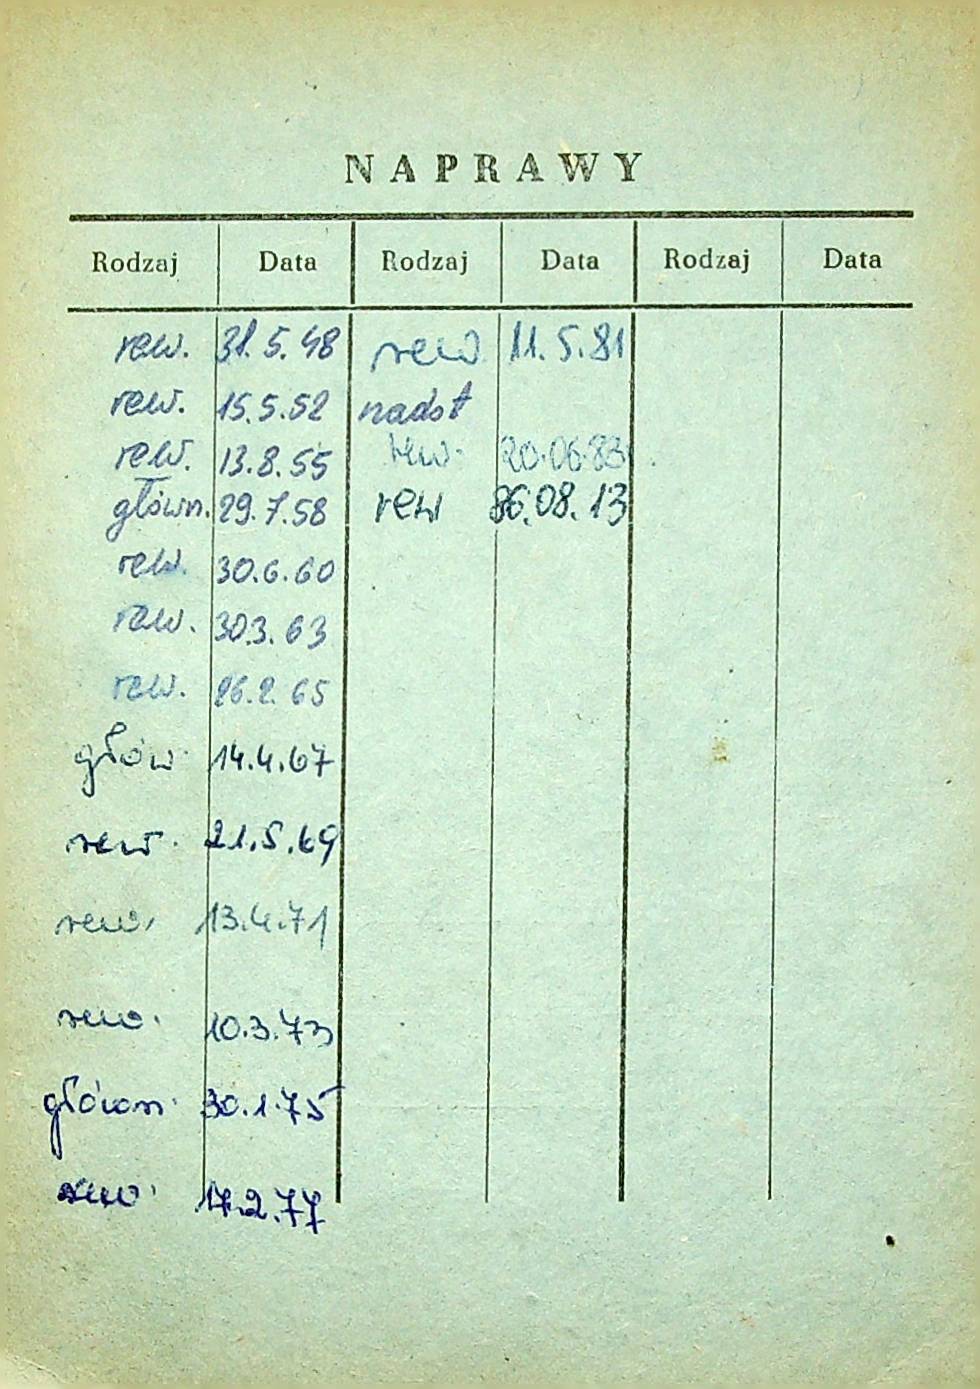 NAPRAWY
Rodzaj Data Rodzaj Data Rodzaj Data
rew. 31.5.48 rew 11.5.81
rew. 15.5.52 nadst
rew. 13.8.55 rew. 20.06.83
główn. 29.7.58 rew 86.08.13
rew. 30.6.60
rew. 30.3.63
rew. 26.2.65
głów 14.4.67
rew. 21.5.69
rew. 13.4.71
rew. 10.3.73
główn. 30.1.75
rew. 17.2.77